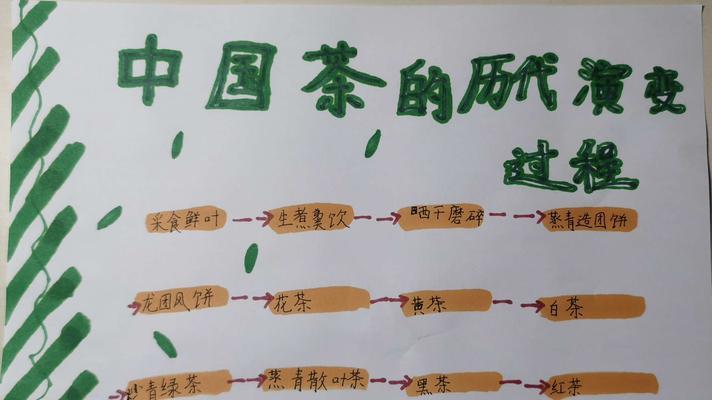 中国茶的历代演变
过程
采食鲜叶 生煮羹饮 晒干磨碎 蒸青造团饼
龙团风饼 花茶 黄茶 白茶
炒青绿茶 蒸青散叶茶 黑茶 红茶